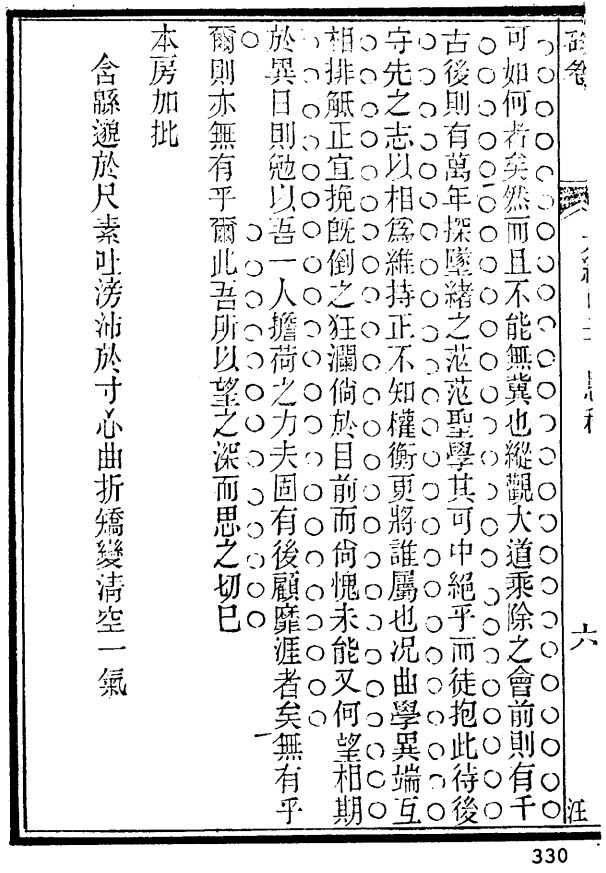 硃卷
六
汪
可如何者矣然而且不能無冀也縱觀大道乘除之會前則有千
古後則有萬年探墜緒之茫茫聖學其可中絕乎而徒抱此待後
守先之志以相爲維持正不知權衡更將誰屬也况曲學異端互
相排觝正宜挽旣倒之狂瀾倘於目前而尙愧未能又何望相期
於異日則勉以吾一人擔荷之力夫固有後顧靡涯者矣無有乎
爾則亦無有乎爾此吾所以望之深而思之切已
本房加批
含緜邈於尺素吐滂沛於寸心曲折矯變淸空一氣
330